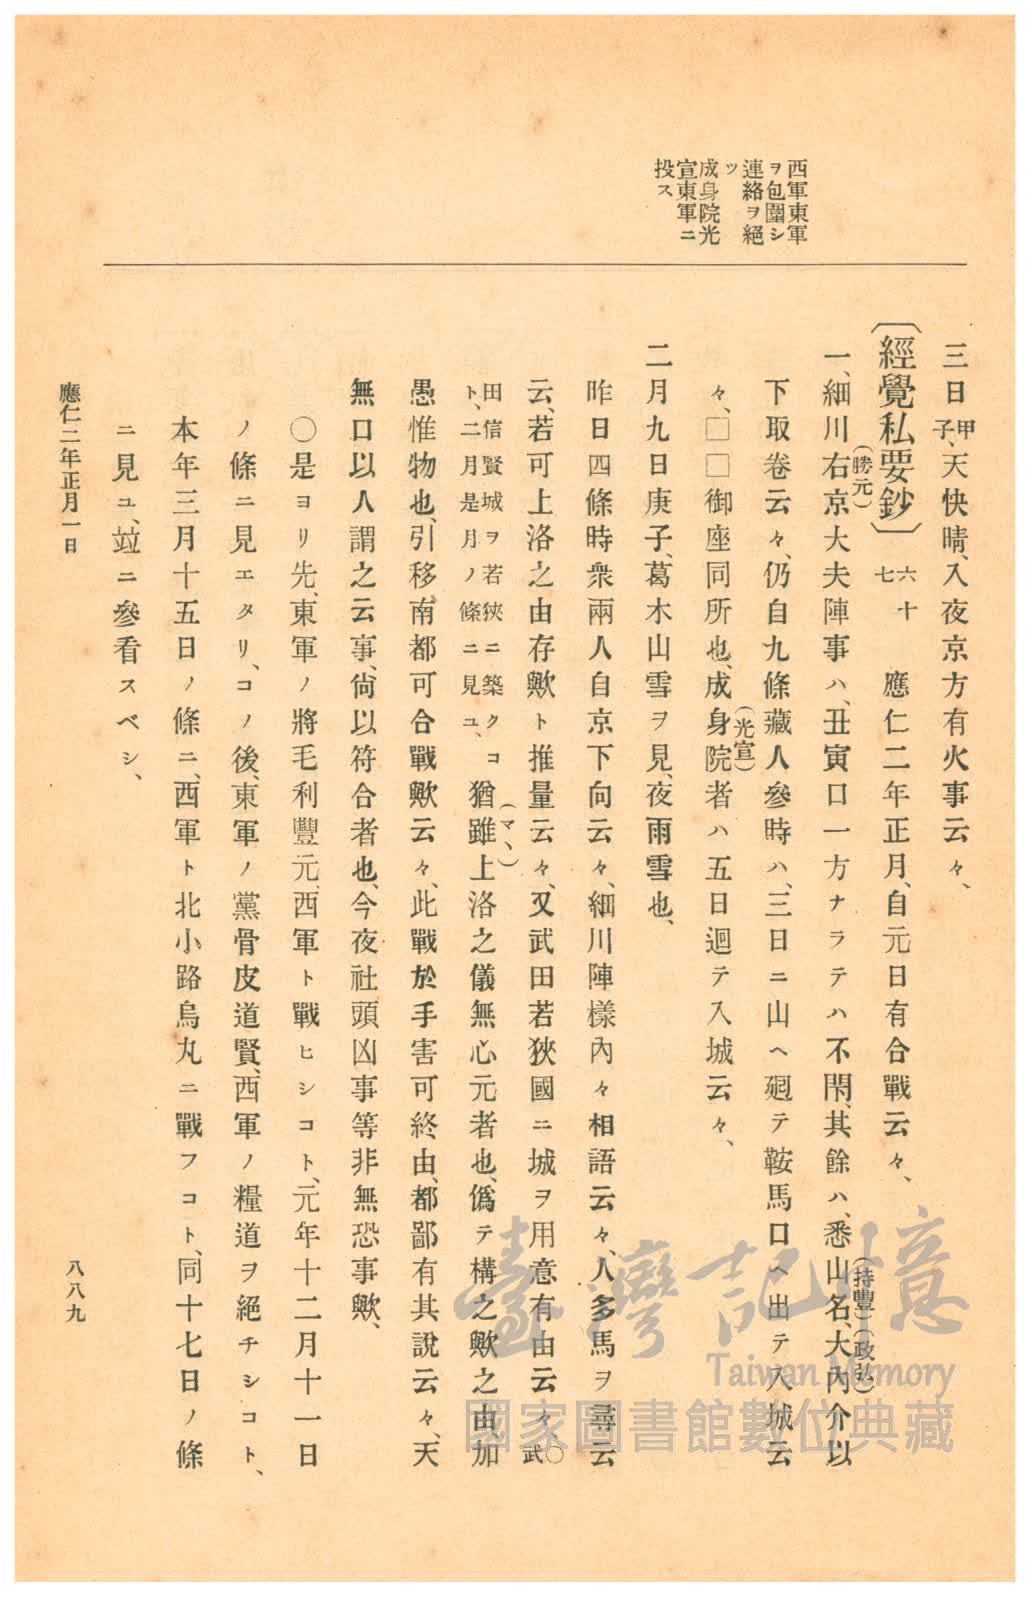 西軍東軍
ヲ包圍シ
連絡ヲ絕
ツ
成身院光
宣東軍ニ
投ス
三日甲子、天快晴、入夜京方有火事云々、
〔經覺私要鈔〕六十七 應仁二年正月、自元日有合戰云々、
一、細川右京大夫(勝元)陣事ハ、丑寅口一方ナラテハ不閇、其餘ハ、悉山名(持豐)、大內介(政弘)以
下取卷云々、仍自九條藏人參時ハ、三日ニ山ヘ廻テ鞍馬口ヘ出テ入城云
々、□□御座同所也、成身院(光宣)者ハ五日迴テ入城云々、
二月九日庚子、葛木山雪ヲ見、夜雨雪也、
昨日四條時衆兩人自京下向云々、細川陣樣內々相語云々、人多馬ヲ尋云
云、若可上洛之由存歟ト推量云々、又武田若狹國ニ城ヲ用意有由云々、○武
田信賢城ヲ若狹ニ築クコ
ト、二月是月ノ條ニ見ユ、
猶雖(マヽ)上洛之儀無心元者也、僞テ構之歟之由、加
愚惟物也、引移南都可合戰歟云々、此戰於手害可終由、都鄙有其說云々、天
無口以人謂之云事、尙以符合者也、今夜社頭凶事等非無恐事歟、
○是ヨリ先、東軍ノ將毛利豐元、西軍ト戰ヒシコト、元年十二月十一日
ノ條ニ見エタリ、コノ後、東軍ノ黨骨皮道賢、西軍ノ糧道ヲ絕チシコト、
本年三月十五日ノ條ニ、西軍ト北小路烏丸ニ戰フコト、同十七日ノ條
ニ見ユ、竝ニ參看スベシ、
應仁二年正月一日
八八九
臺灣記憶
Taiwan Memory
國家圖書館數位典藏